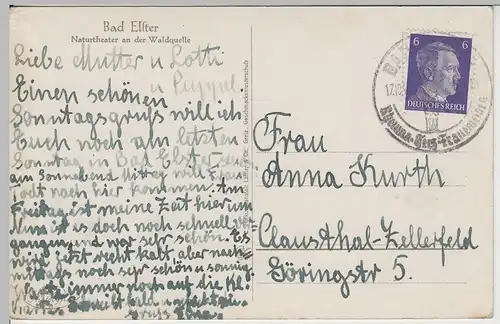 Bad Elster
Naturtheater an der Waldquelle
Liebe Mutter u Lotti
u Puppel.
Einen schönen
Sonntagsgruß will ich
Euch noch am letzten
Sonntag in Bad Elster
am Sonnabend Mittag will Frau
Todt nach hier kommen. Am
Freitag ist meine Zeit hier um
Nun ist es doch noch schnell ver
gangen und war sehr schön. Es
wird jetzt recht kalt aber nach
mittags noch sehr schön u sonnig
immer noch auf die
Gruß
6 6
DEUTSCHES REICH
BAD
Rheuma-Herz-Frauenleiden
Frau
Anna Kurth
Clausthal-Zellerfeld
Göringstr 5.